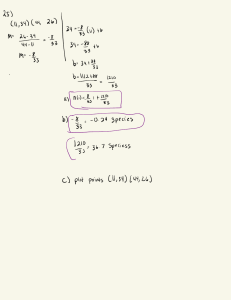 25)
(11, 34) (44, 26)
m= 26-34 / 44-11 = -8/33
m= -8/33
34 = -8/33 (11) + b
34 = -88/33 + b
b = 34 + 88/33
b = 1122+88 / 33 = 1210/33
a)
b) -8/33 = -0.24 Species
1210/33 = 36.7 Species
c) plot points (11,34) (44,26)